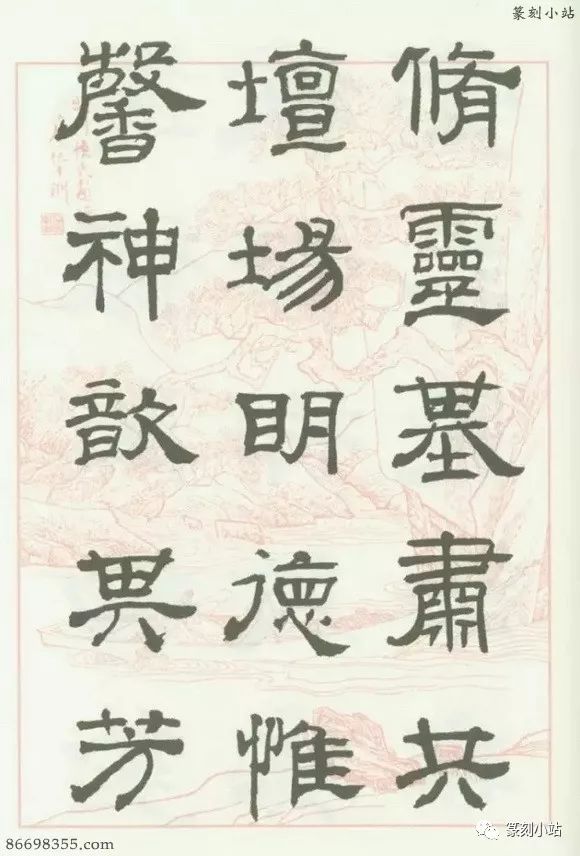 篆刻小站
脩靈基肅共
壇場明德惟
馨神歆其芳
86698355.com
篆刻小站